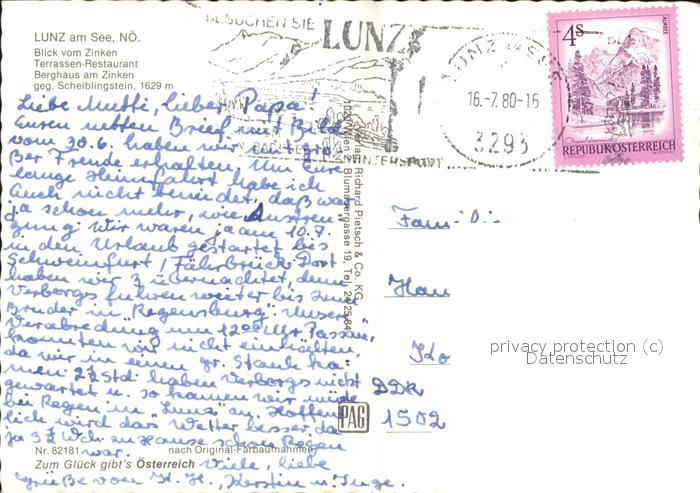 LUNZ am See, NÖ.
Blick vom Zinken
Terrassen-Restaurant
Berghaus am Zinken
geg. Scheiblingstein, 1629 m
BESUCHEN SIE
LUNZ
WINTERSPORT
LUNZ
16.-7.80-16
3293
4S
ALMSEE
REPUBLIK ÖSTERREICH
Liebe Mutti, lieber Papa!
Euren netten Brief mit Bild
vom 30.6. haben wir mit gro-
ßer Freude erhalten. Um Eure
lange Heimfahrt habe ich
Euch nicht beneidet, daß war
ja schon mehr, wie Anstren-
gung. Wir waren ja am 10.7.
in den Urlaub gestartet bis
Schweinfurt / Fährbrück. Dort
haben wir 3 x übernachtet, dann
Verborgs fuhren weiter bis zum
Bruder in "Regensburg". Unsere
Verabredung um 12⁰⁰ Uhr Passau,
konnten wir nicht einhalten,
da wir in einen gr. Stau ka-
men 2½ Std. haben Verborgs nicht
gewartet u. so kamen wir müde
bei Regen in "Lunz" an. Hoffent-
lich wird das Wetter besser, da
ja 3½ Wch. zu Hause schon Regen
war.
Viele, liebe
Grüße von K. H., Kerstin u. Inge.
Richard Pietsch & Co. KG.
Wien, Blumauergasse 19, Tel. 24 25 84
Famili
Hau
Ko
DDR
1502
PAG
Nr. 82181
nach Original-Farbaufnahmen
Zum Glück gibt's Österreich
privacy protection (c)
Datenschutz